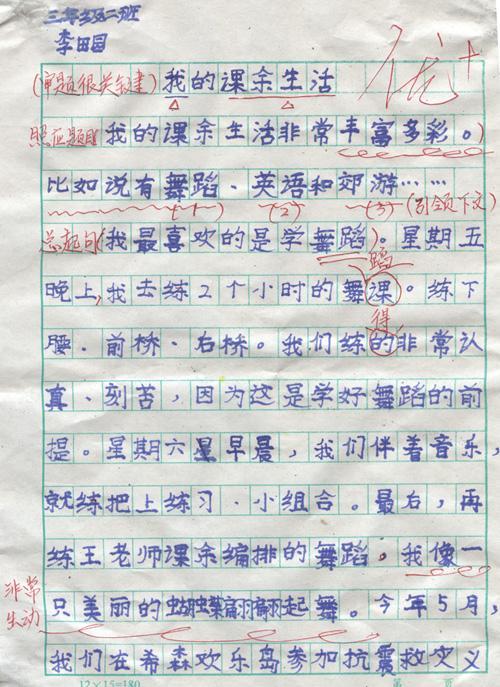 三年级二班
李田园
(审题很关键) 我的课余生活 优+
照应题目 我的课余生活非常丰富多彩。)
比如说有舞蹈、英语和郊游……
(1) (2) (3) (引领下文)
总起句(我最喜欢的是学舞蹈)。星期五
蹈
晚上,我去练2个小时的舞课。练下
得
腰、前桥、右桥。我们练的非常认
真、刻苦,因为这是学好舞蹈的前
提。星期六星早晨,我们伴着音乐,
就练把上练习、小组合。最后,再
练王老师课余编排的舞蹈。我像一
非常生动 只美丽的蝴蝶翩翩起舞。今年5月,
我们在希森欢乐岛参加抗震救灾义
12×15=180 第 页